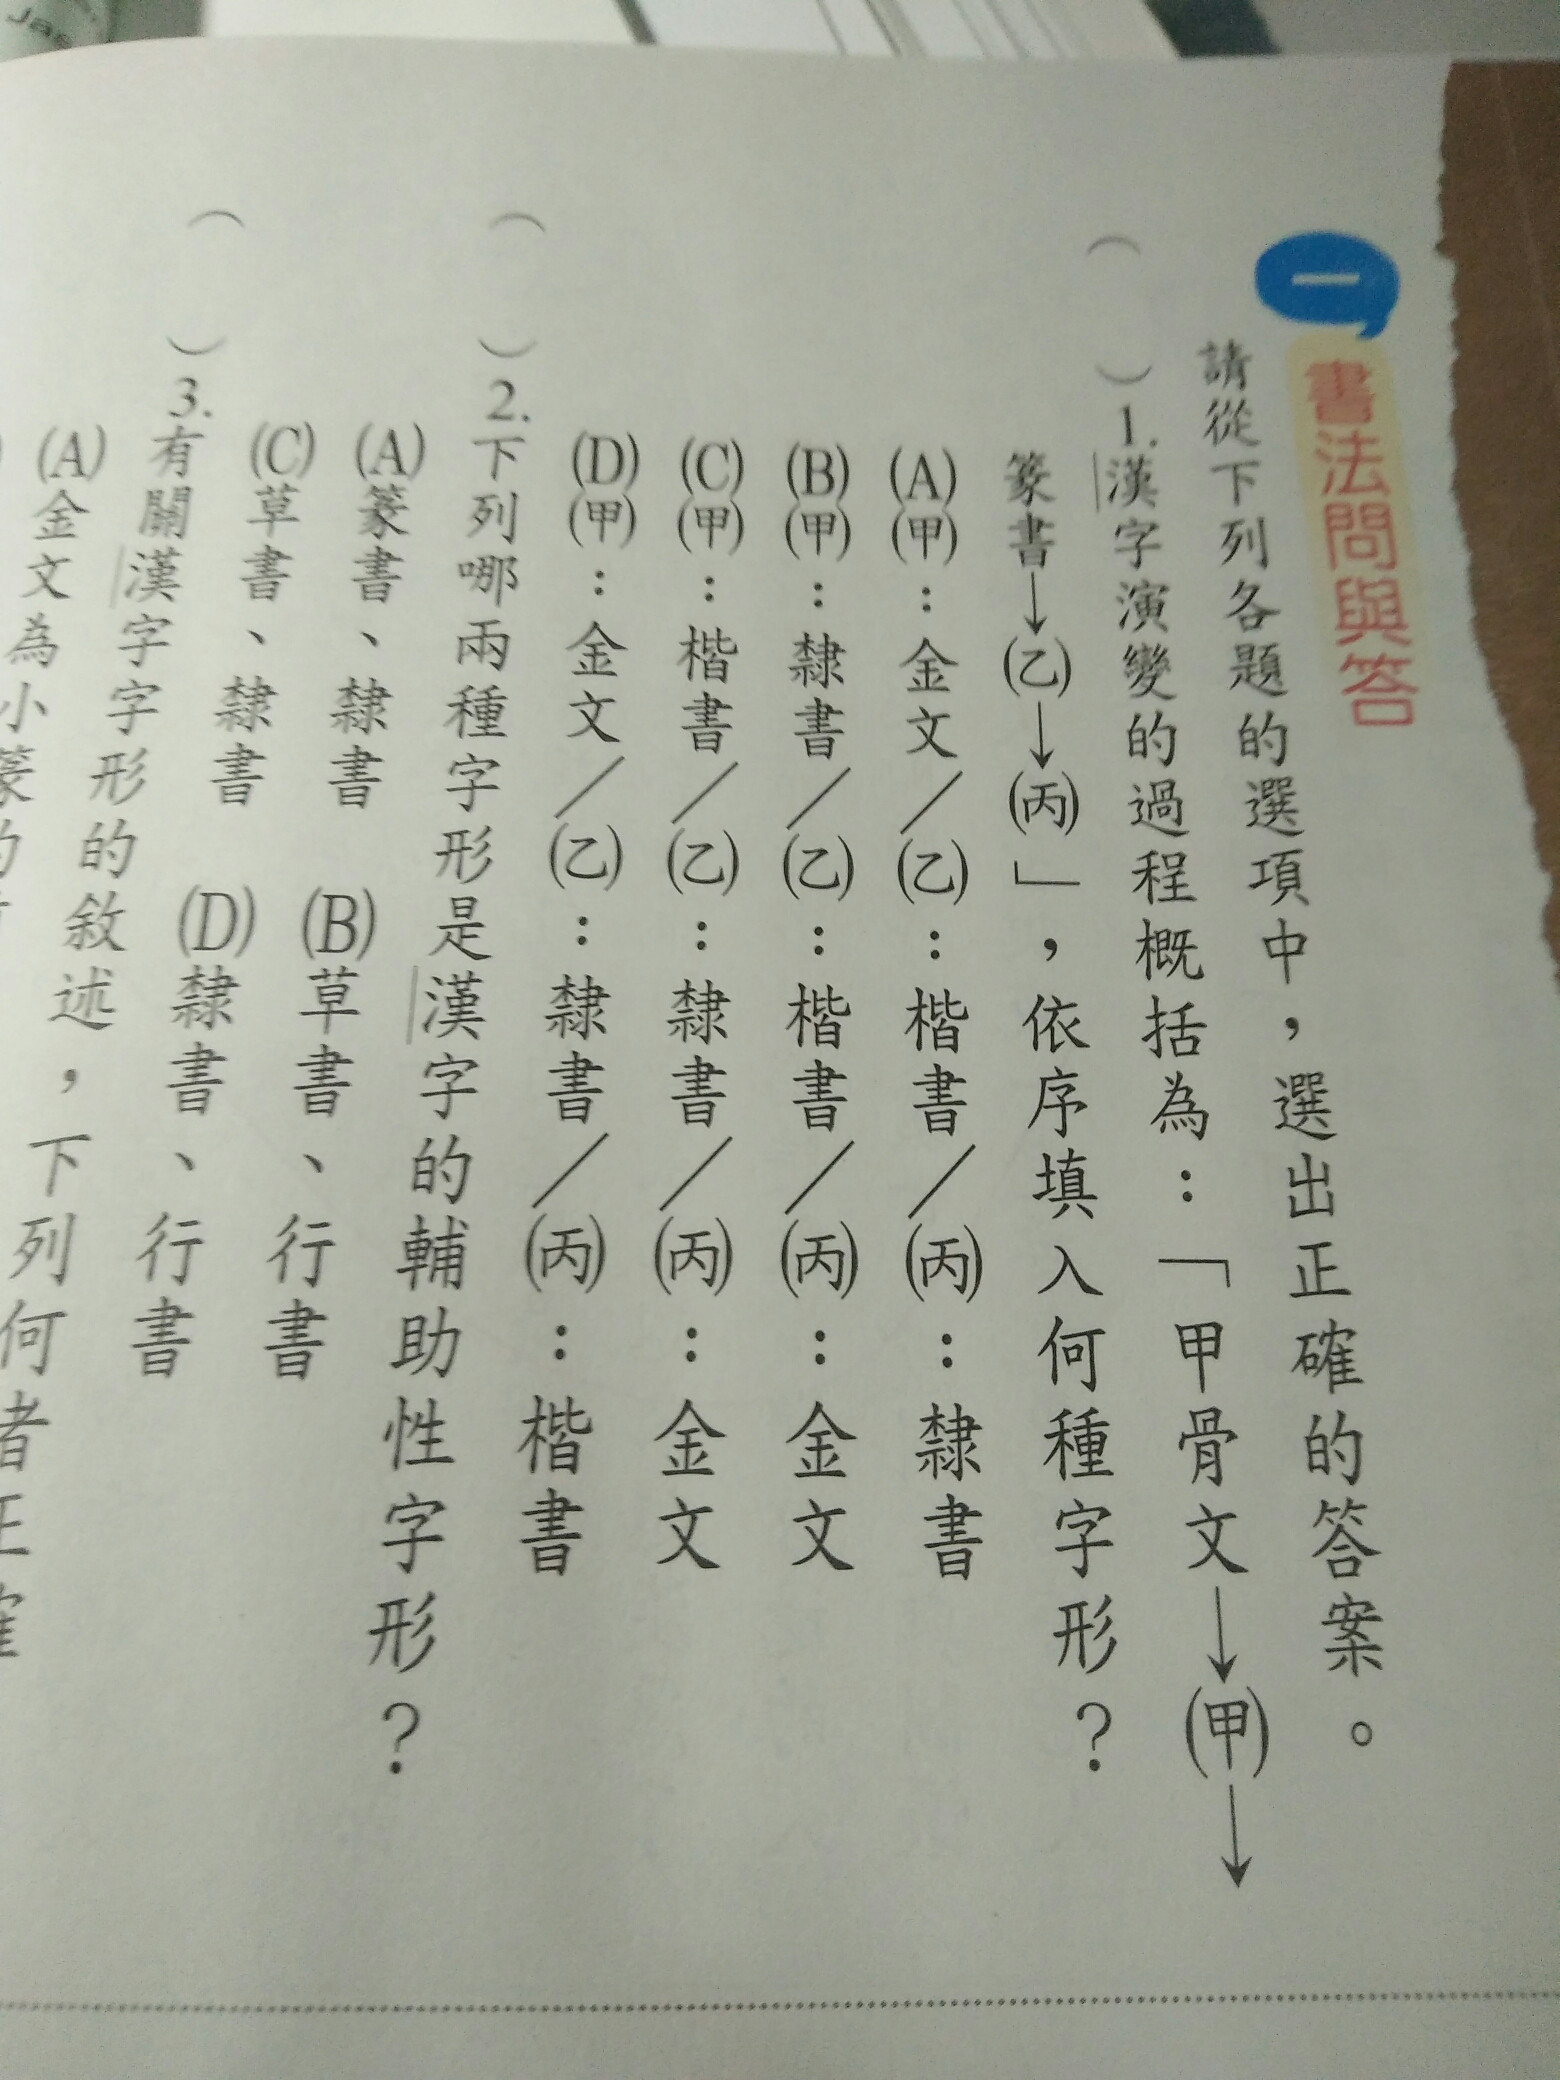 Jas
一
書法問與答
請從下列各題的選項中，選出正確的答案。
（ ）1.漢字演變的過程概括為：「甲骨文→(甲)→
篆書→(乙)→(丙)」，依序填入何種字形？
(A)(甲)：金文／(乙)：楷書／(丙)：隸書
(B)(甲)：隸書／(乙)：楷書／(丙)：金文
(C)(甲)：楷書／(乙)：隸書／(丙)：金文
(D)(甲)：金文／(乙)：隸書／(丙)：楷書
（ ）2.下列哪兩種字形是漢字的輔助性字形？
(A)篆書、隸書 (B)草書、行書
(C)草書、隸書 (D)隸書、行書
（ ）3.有關漢字字形的敘述，下列何者正確
(A)金文為小篆的